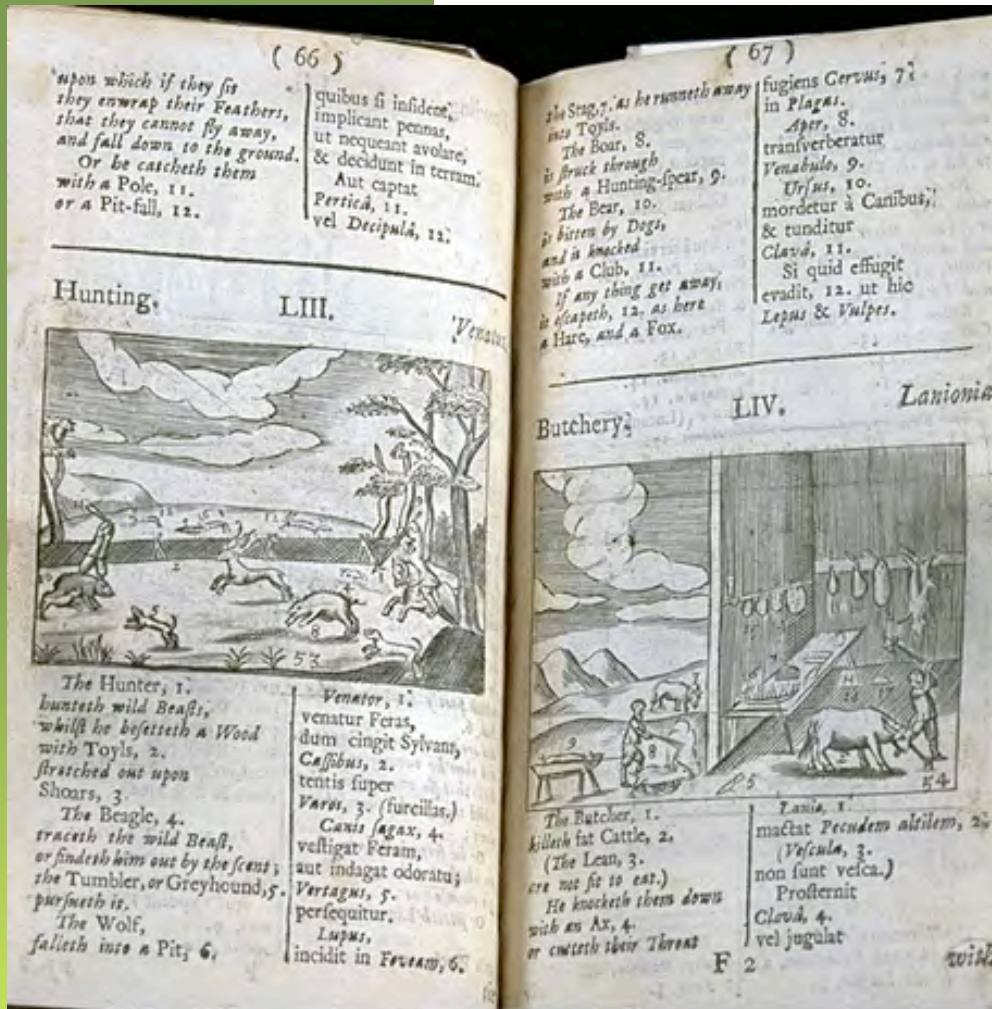 ( 66 )
upon which if they ſit
they enwrap their Feathers,
that they cannot fly away,
and fall down to the ground.
Or he catcheth them
with a Pole, 11.
or a Pit-fall, 12.
quibus ſi inſident,
implicant pennas,
ut nequeant avolare,
& decidunt in terram.
Aut captat
Perticâ, 11.
vel Decipulâ, 12.
Hunting. LIII. Venatus
53
The Hunter, 1.
hunteth wild Beaſts,
whilſt he beſetteth a Wood
with Toyls, 2.
ſtretched out upon
Shoars, 3.
The Beagle, 4.
traceth the wild Beaſt,
or findeth him out by the ſcent;
the Tumbler, or Greyhound, 5.
purſueth it.
The Wolf,
falleth into a Pit; 6.
Venator, 1.
venatur Feras,
dum cingit Sylvam,
Caſſibus, 2.
tentis ſuper
Varos, 3. (furcillas.)
Canis ſagax, 4.
veſtigat Feram,
aut indagat odoratu;
Vertagus, 5.
perſequitur.
Lupus,
incidit in Foveam, 6.
( 67 )
the Stag, 7. as he runneth away
into Toyls.
The Boar, 8.
is ſtruck through
with a Hunting-ſpear, 9.
The Bear, 10.
is bitten by Dogs,
and is knocked
with a Club, 11.
If any thing get away,
it eſcapeth, 12. as here
a Hare, and a Fox.
fugiens Cervus, 7.
in Plagas.
Aper, 8.
tranſverberatur
Venabulo, 9.
Urſus, 10.
mordetur à Canibus,
& tunditur
Clavâ, 11.
Si quid effugit
evadit, 12. ut hic
Lepus & Vulpes.
Butchery. LIV. Lanionia
54
The Butcher, 1.
killeth fat Cattle, 2.
(The Lean, 3.
are not fit to eat.)
He knocketh them down
with an Ax, 4.
or cutteth their Throat
Lanio, 1.
mactat Pecudem altilem, 2.
(Veſcula, 3.
non ſunt veſca.)
Proſternit
Clavâ, 4.
vel jugulat
F 2 with